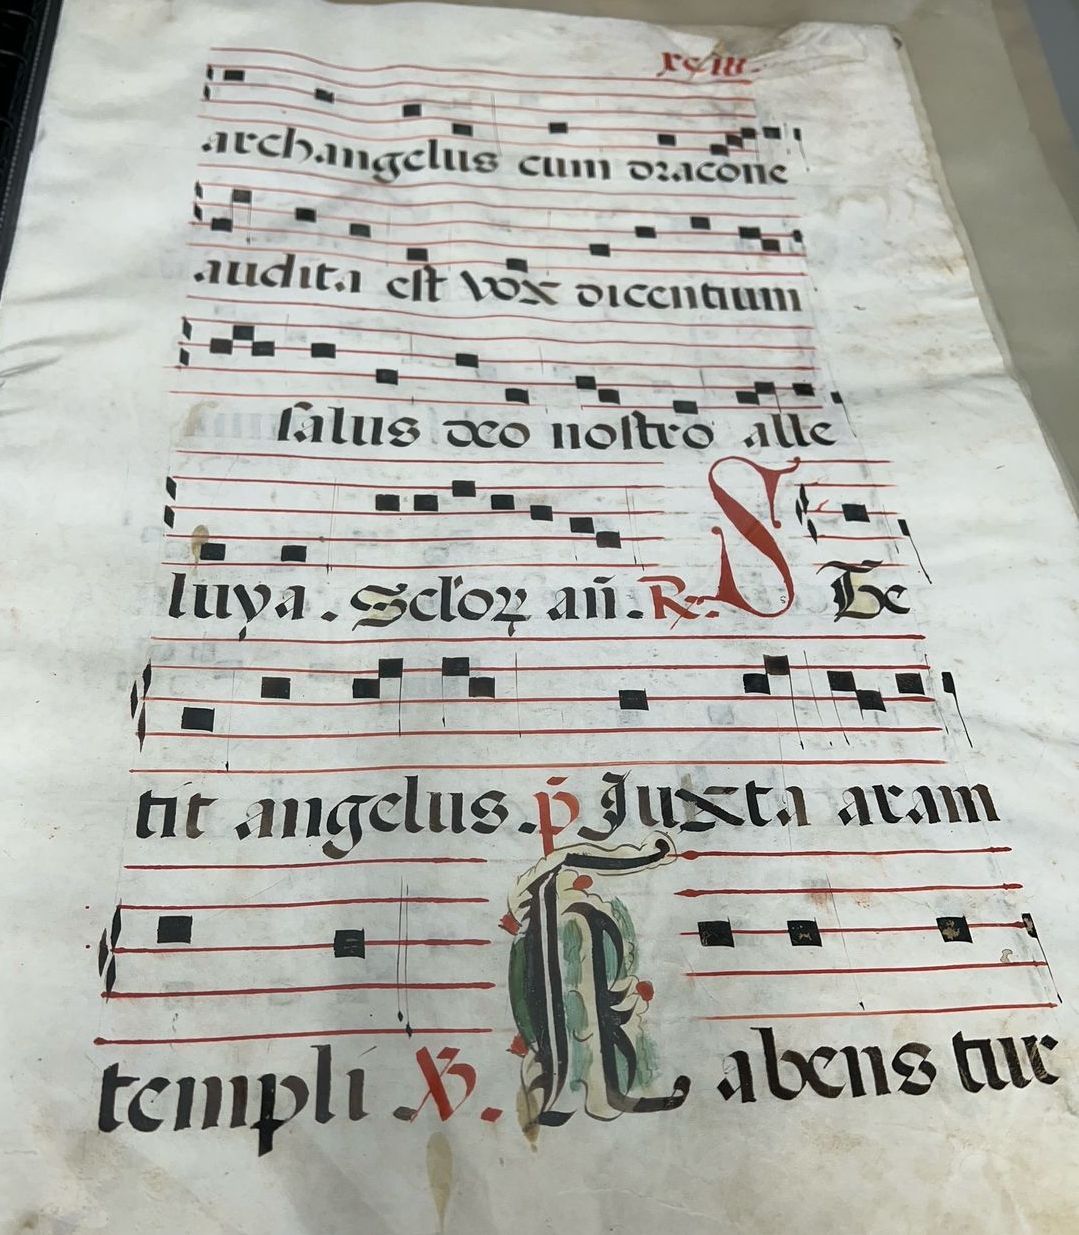 xciii.
archangelus cum dracone
audita est vox dicentium
salus deo nostro alle
luya. Sclo'ꝝ añ. ℟. S Te
tit angelus. p̄ Juxta aram
templi ℣. H abens tur